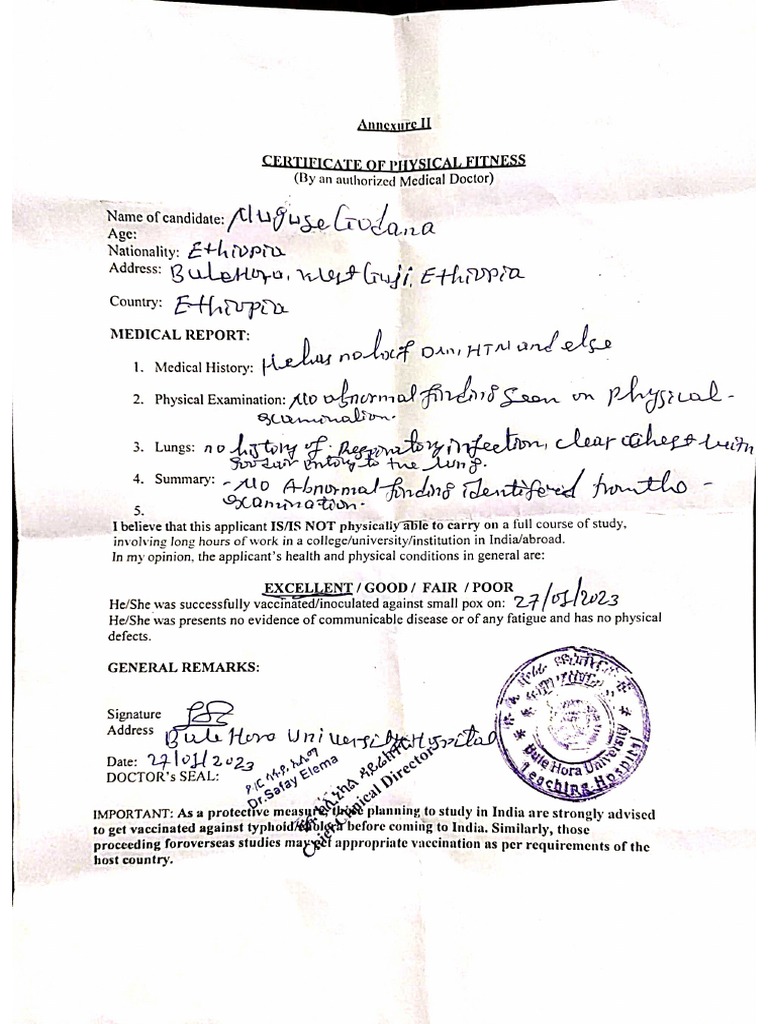 Annexure II
CERTIFICATE OF PHYSICAL FITNESS
(By an authorized Medical Doctor)
Name of candidate: Muguse Godana
Age:
Nationality: Ethiopia
Address: Bule Hora, West Guji, Ethiopia
Country: Ethiopia
MEDICAL REPORT:
1. Medical History: He has no hx of Dm, HTN and else
2. Physical Examination: No abnormal finding seen on physical-
examination.
3. Lungs: no history of Respiratory infection, clear chest with
air entry to the lung.
4. Summary: - No Abnormal finding identifered from the -
examination.
5.
I believe that this applicant IS/IS NOT physically able to carry on a full course of study,
involving long hours of work in a college/university/institution in India/abroad.
In my opinion, the applicant's health and physical conditions in general are:
EXCELLENT / GOOD / FAIR / POOR
He/She was successfully vaccinated/inoculated against small pox on: 27/01/2023
He/She was presents no evidence of communicable disease or of any fatigue and has no physical
defects.
GENERAL REMARKS:
Signature
Address Bule Hora University Hospital
Date: 27/01/2023
DOCTOR's SEAL:
Dr. Safay Elema
Clinical Director
Bule Hora University
Teaching Hospital
IMPORTANT: As a protective measure, those planning to study in India are strongly advised
to get vaccinated against typhoid/cholera before coming to India. Similarly, those
proceeding foroverseas studies may get appropriate vaccination as per requirements of the
host country.